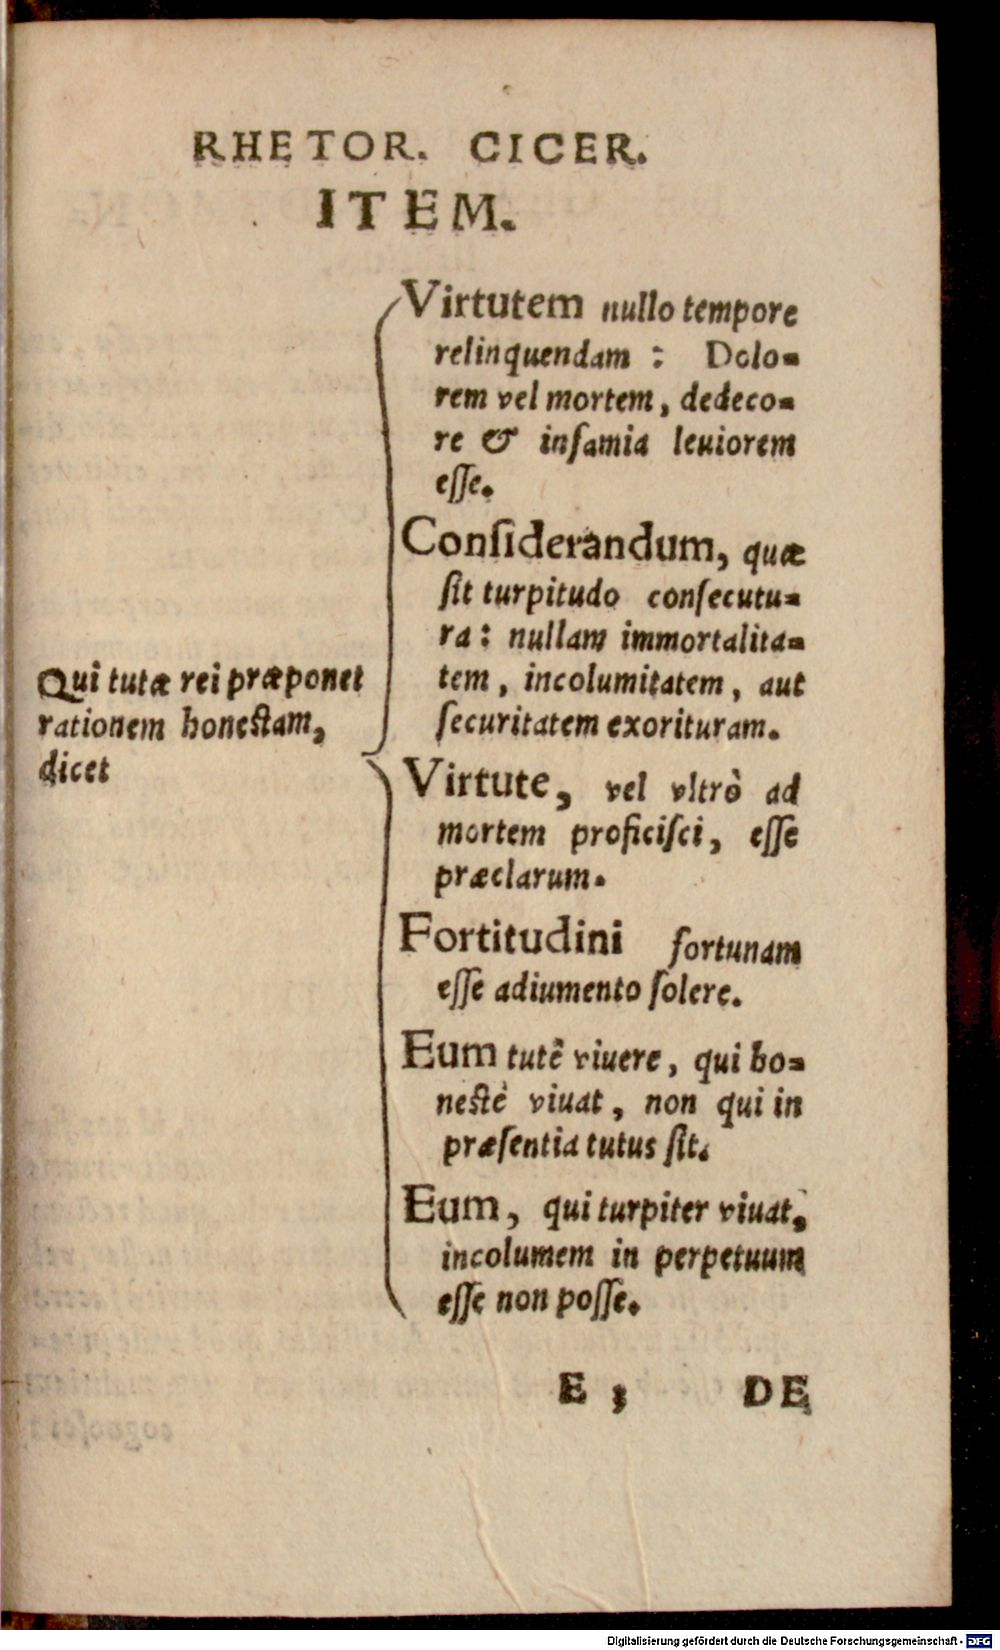 RHETOR. CICER.
ITEM.
Qui tutæ rei præponet
rationem honestam,
dicet
Virtutem nullo tempore
relinquendam : Dolo-
rem vel mortem, dedeco-
re & infamia leuiorem
eſſe.
Conſiderandum, quæ
ſit turpitudo conſecutu-
ra: nullam immortalita-
tem, incolumitatem, aut
ſecuritatem exorituram.
Virtute, vel vltrò ad
mortem proficiſci, eſſe
præclarum.
Fortitudini fortunam
eſſe adiumento ſolere.
Eum tutê viuere, qui ho-
nestè viuat, non qui in
præſentia tutus ſit.
Eum, qui turpiter viuat,
incolumem in perpetuum
eſſe non poſſe.
E 3 DE
Digitalisierung gefördert durch die Deutsche Forschungsgemeinschaft - DFG